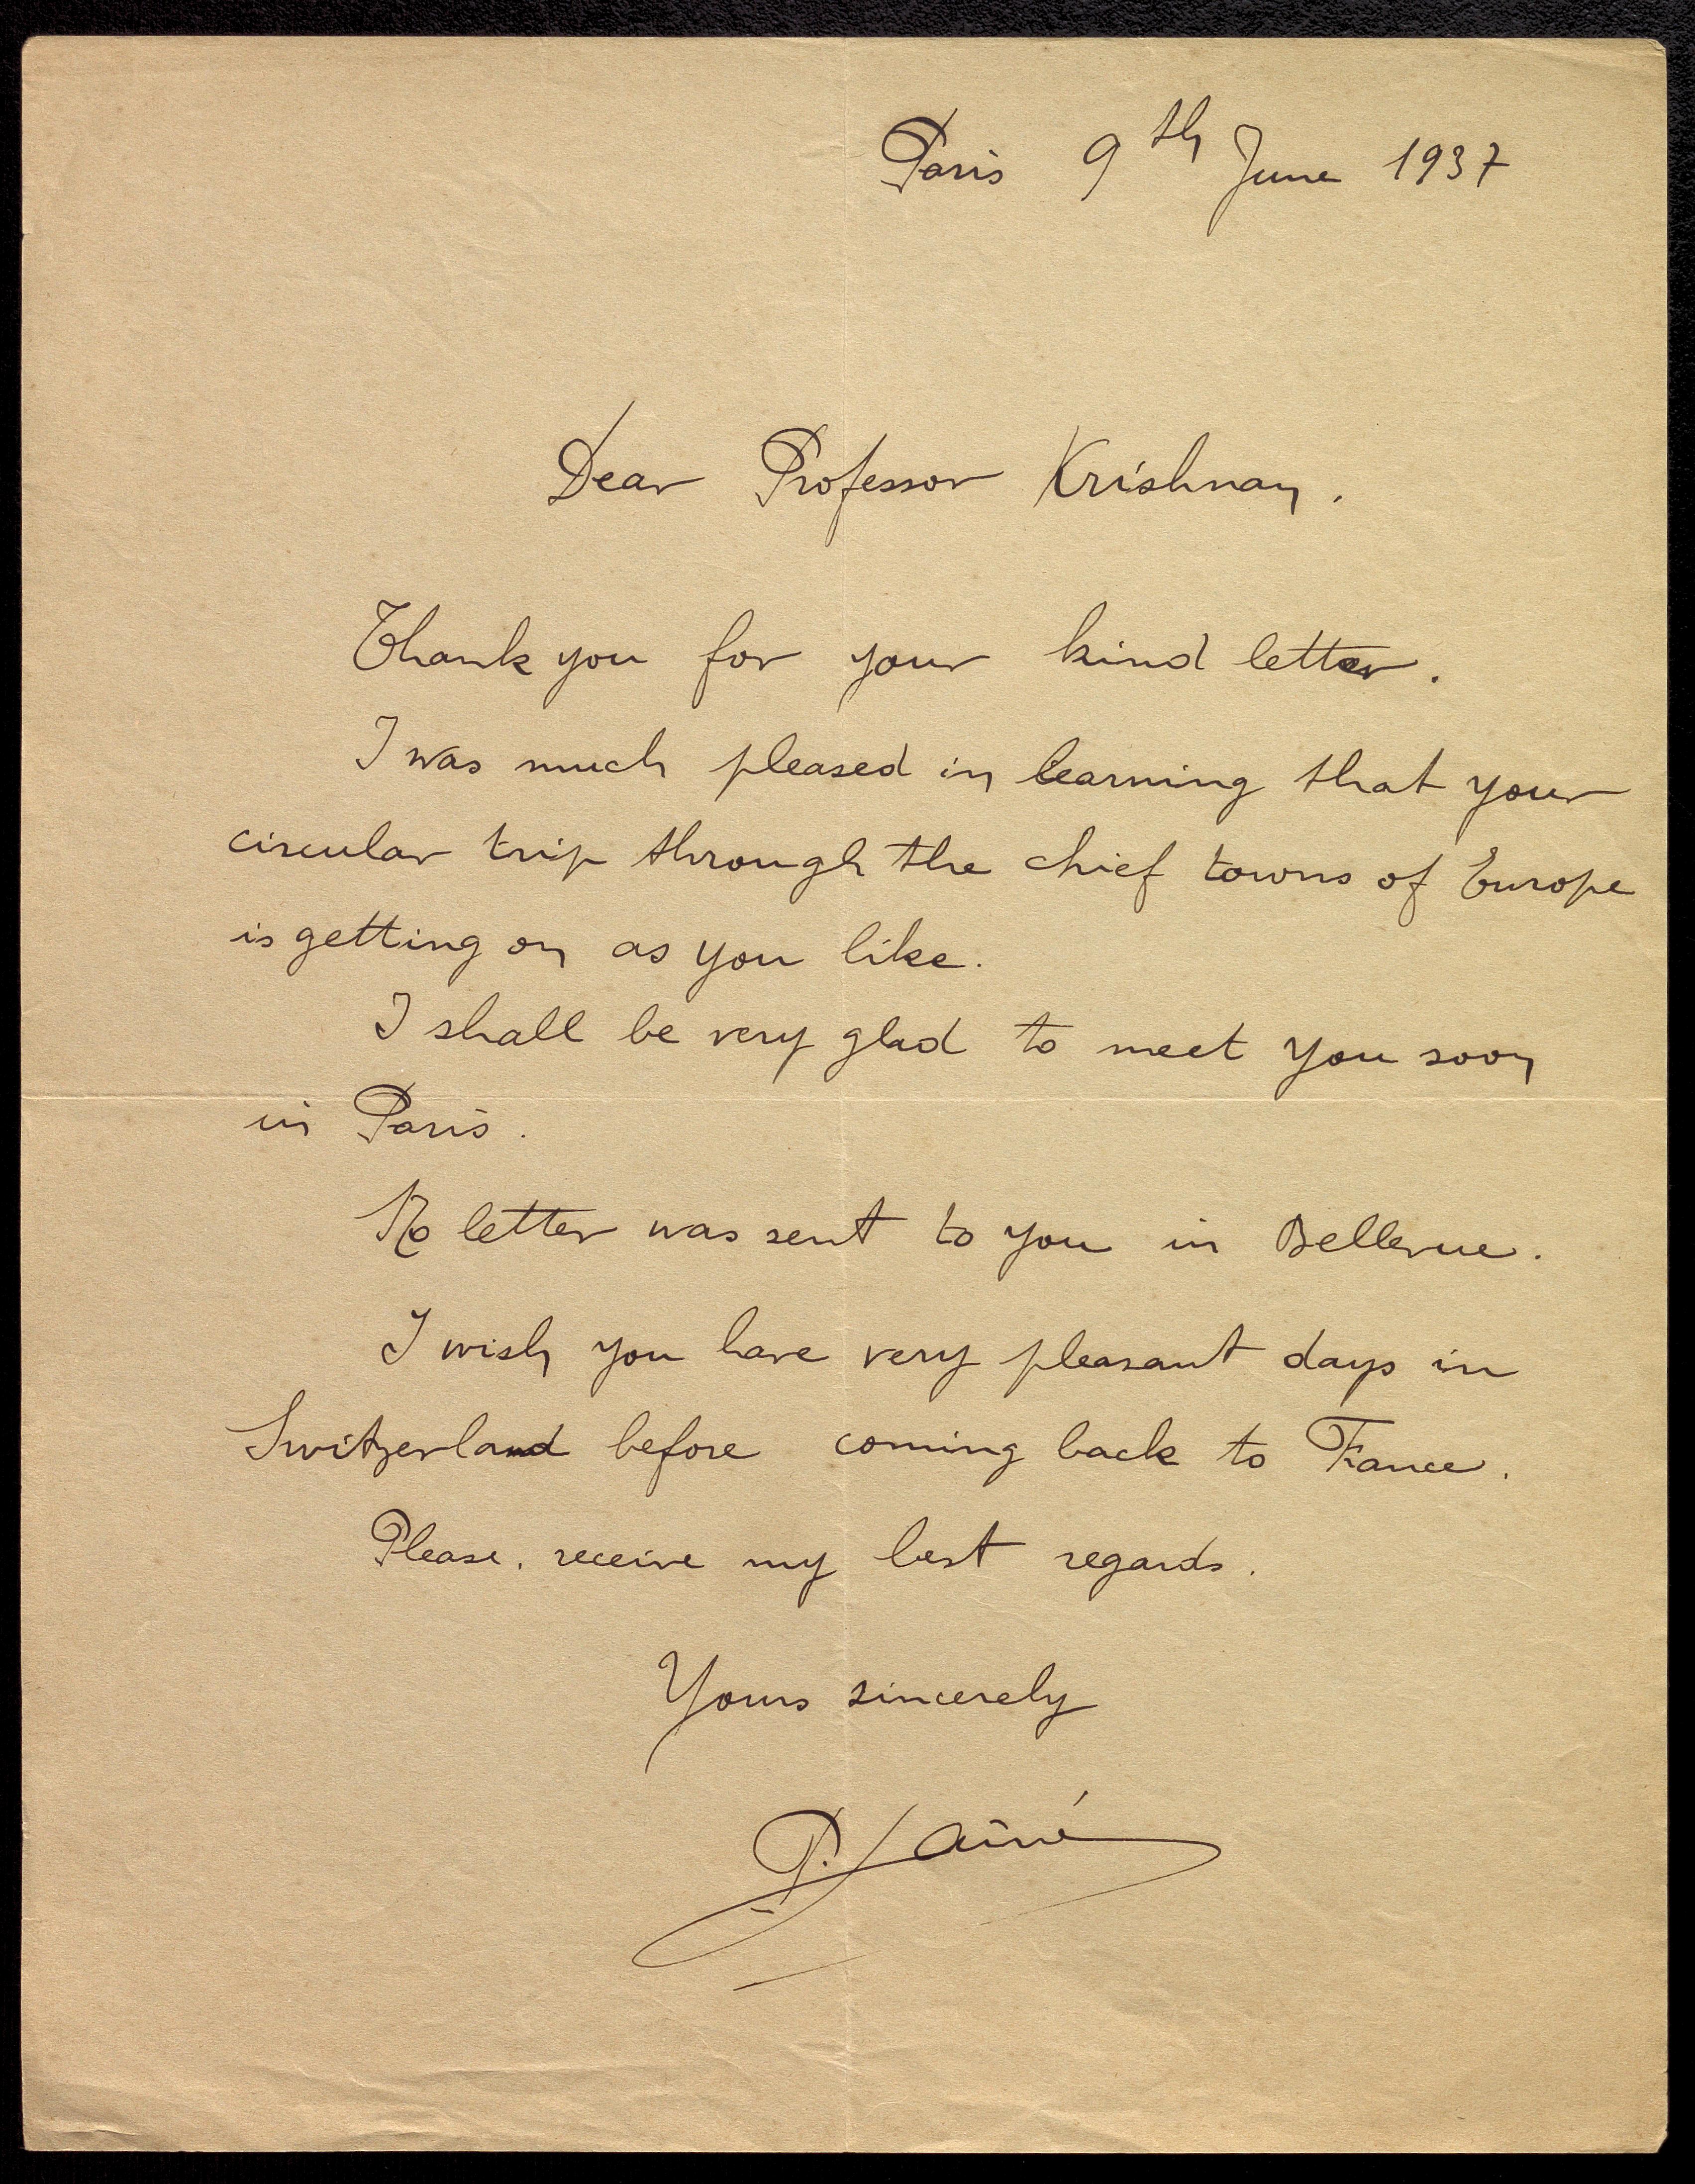 Paris 9th June 1937
Dear Professor Krishnan.
Thank you for your kind letter.
I was much pleased in learning that your
circular trip through the chief towns of Europe
is getting on as you like.
I shall be very glad to meet you soon
in Paris.
No letter was sent to you in Bellevue.
I wish you have very pleasant days in
Switzerland before coming back to France.
Please, receive my best regards.
Yours sincerely
P. Lainé